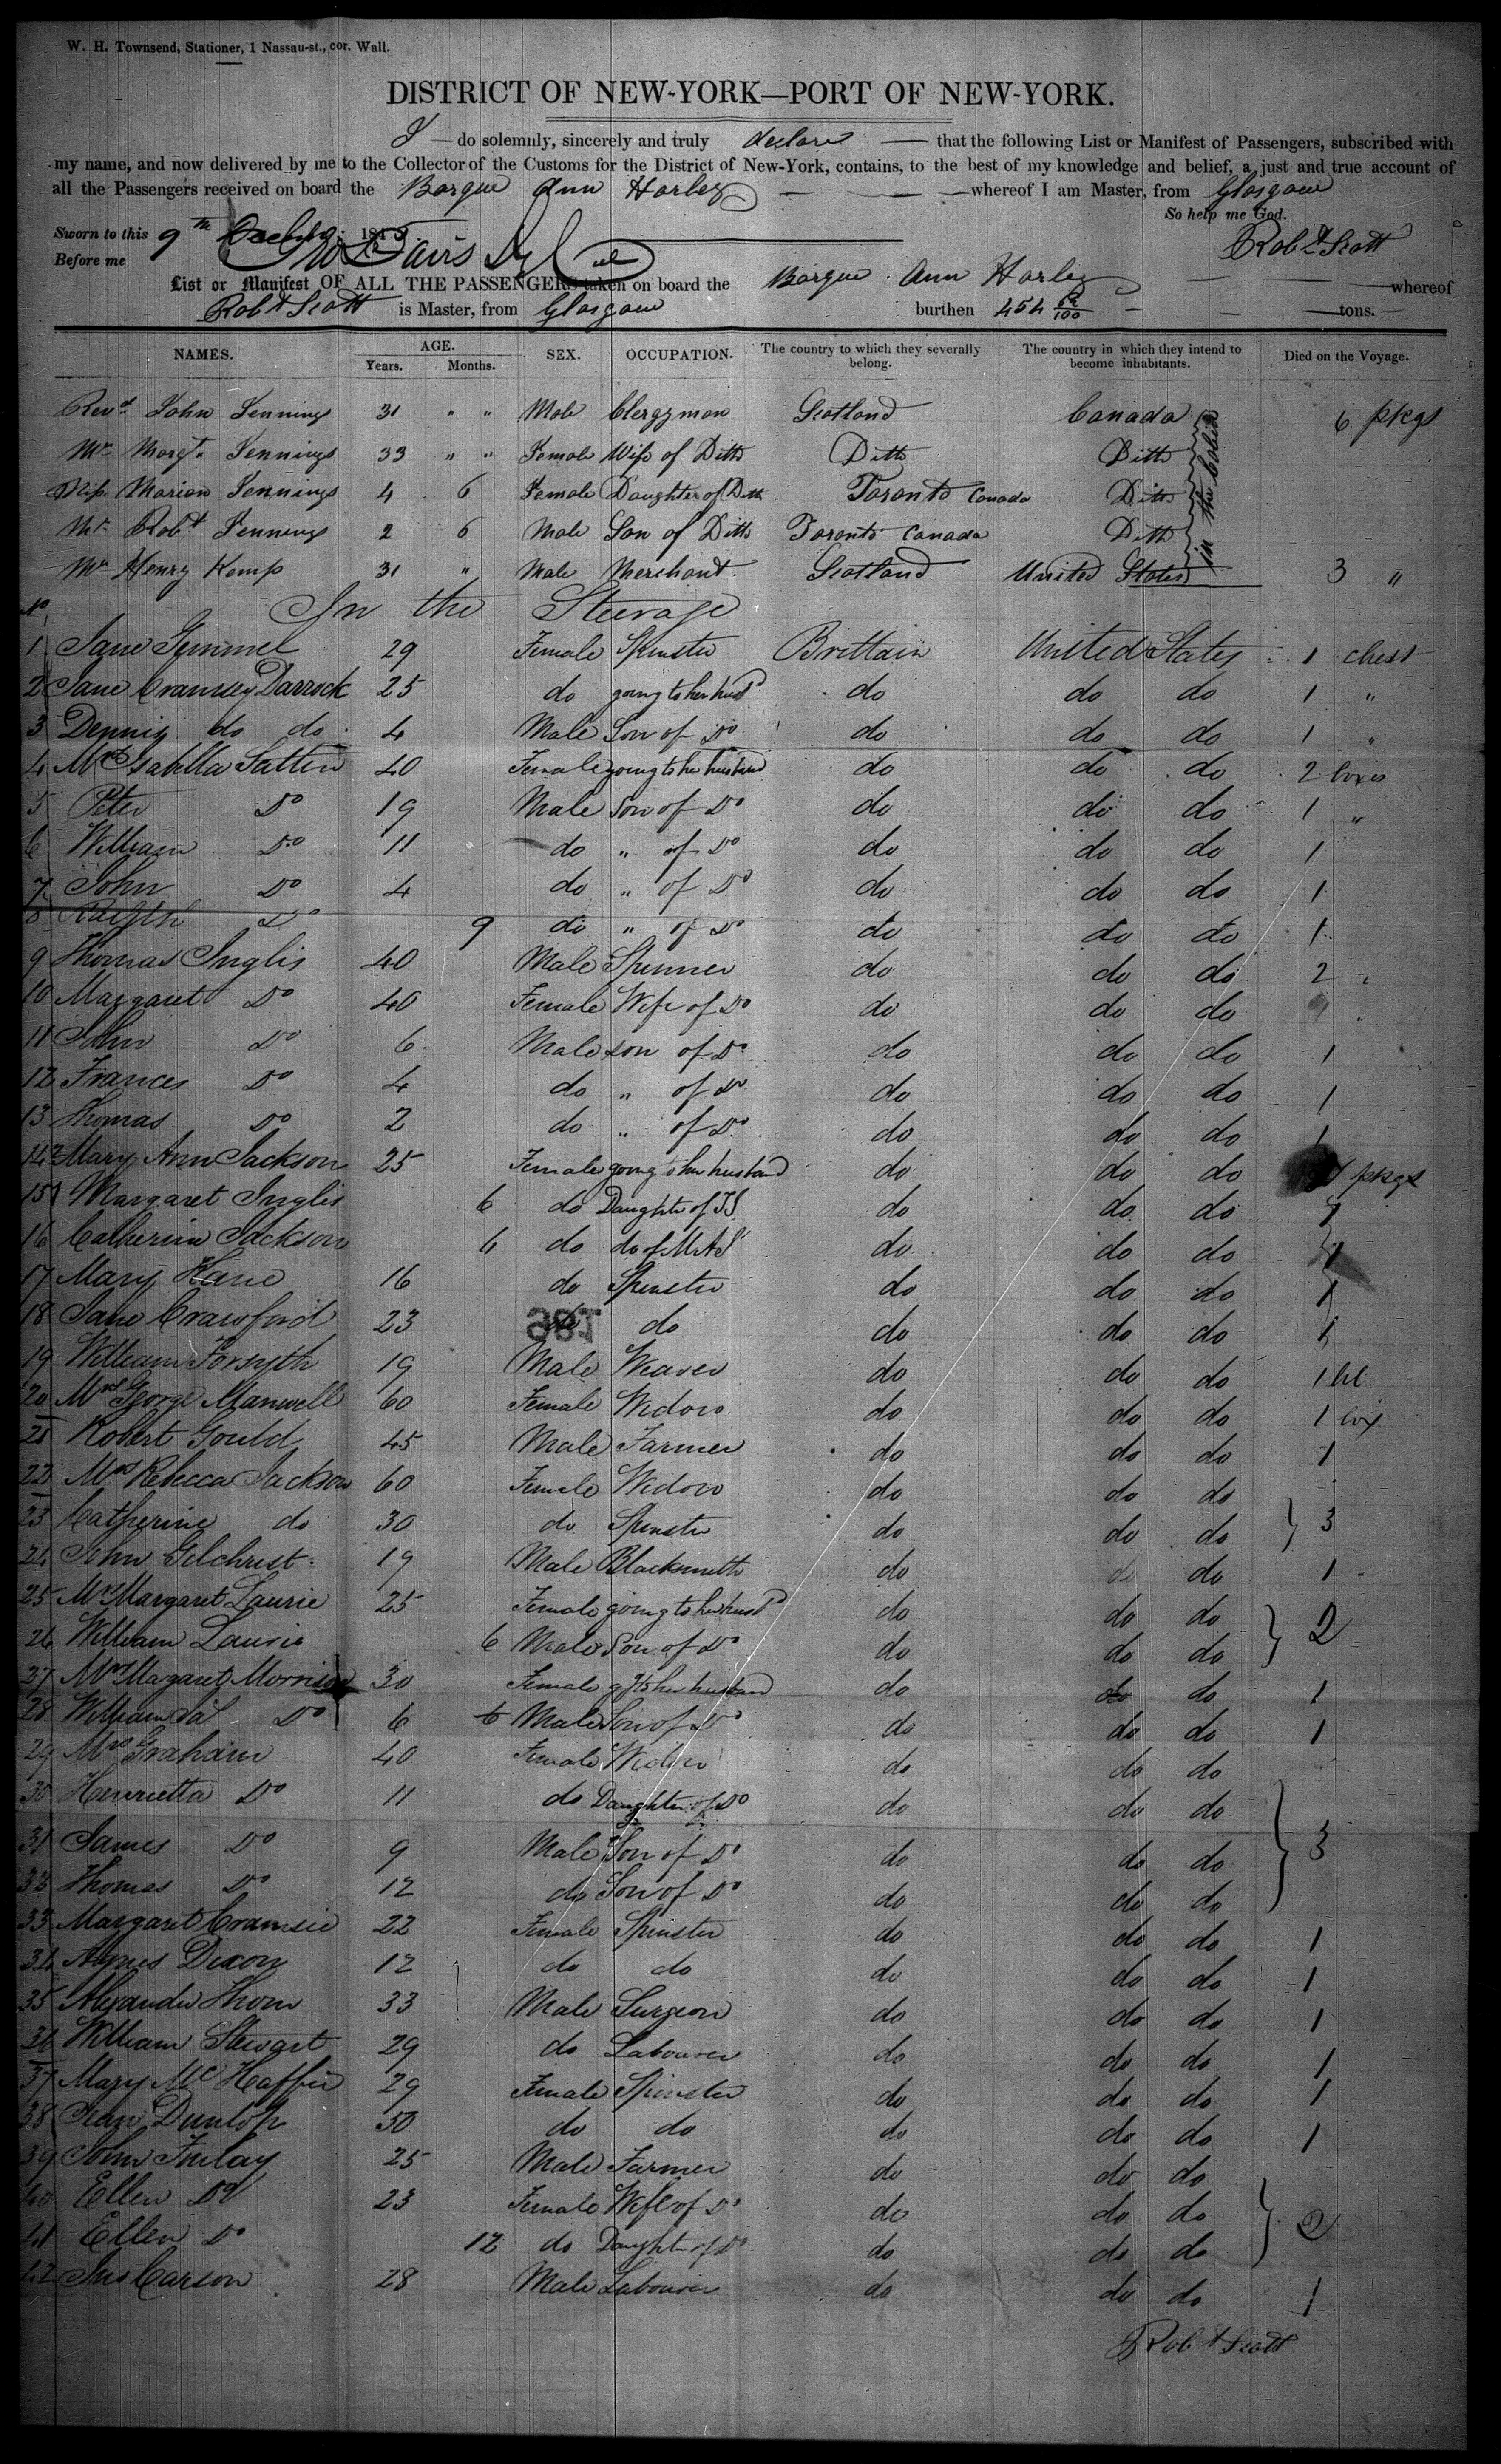 W. H. Townsend, Stationer, 1 Nassau-st., cor. Wall.
DISTRICT OF NEW-YORK—PORT OF NEW-YORK.
I do solemnly, sincerely and truly declare that the following List or Manifest of Passengers, subscribed with
my name, and now delivered by me to the Collector of the Customs for the District of New-York, contains, to the best of my knowledge and belief, a just and true account of
all the Passengers received on board the Barque Ann Harley whereof I am Master, from Glasgow
So help me God.
Sworn to this 9th 184
Robt Scott
Before me
List or Manifest OF ALL THE PASSENGERS taken on board the Barque Ann Harley whereof
Robt Scott is Master, from Glasgow burthen 454 /100 tons.
NAMES. AGE. Years. Months. SEX. OCCUPATION. The country to which they severally belong. The country in which they intend to become inhabitants. Died on the Voyage.
Revd John Jennings 31 " " Male Clergyman Scotland Canada 6 pkgs
Mrs Margt Jennings 33 " " Female Wife of Ditto Ditto Ditto
Miss Marion Jennings 4 6 Female Daughter of Ditto Toronto Canada Ditto
Mr Robt Jennings 2 6 Male Son of Ditto Toronto Canada Ditto
Mr Henry Kemp 31 " Male Merchant Scotland United States 3 "
in the Cabin
No In the Steerage
1 Jane Gemmel 29 Female Spinster Brittain United States 1 chest
2 Jane Cramsey Darrock 25 do going to her husd do do do 1 "
3 Dennis do do 4 Male Son of Do do do do 1 "
4 Mrs Isabella 40 Female going to her husband do do do 2 boxes
5 Peter Do 19 Male Son of Do do do do 1 "
6 William Do 11 do " of Do do do do 1
7 John Do 4 do " of Do do do do 1
8 Do 9 do " of Do do do do 1
9 Thomas Inglis 40 Male Spinner do do do 2 "
10 Margaret Do 40 Female Wife of Do do do do
11 John Do 6 Male son of Do do do do 1
12 Frances Do 4 do " of Do do do do 1
13 Thomas Do 2 do " of Do do do do 1
14 Mary Ann Jackson 25 Female going to her husband do do do pkgs
15 Margaret Inglis 6 do Daughter of do do do 1
16 Catherine Jackson 6 do do of do do do 1
17 Mary Kane 16 do Spinster do do do 1
18 Jane Crawford 23 do do do do do 1
19 William Forsyth 19 Male Weaver do do do 1
20 Mrs George Manwell 60 Female Widow do do do 1 box
21 Robert Gould 45 Male Farmer do do do 1
22 Mrs Rebecca Jackson 60 Female Widow do do do
23 Catherine do 30 do Spinster do do do 3
24 John Gilchrist 19 Male Blacksmith do do do 1
25 Mrs Margaret Laurie 25 Female going to her husd do do do
26 William Laurie 6 Male Son of Do do do do 2
27 Mrs Margaret Morrison 30 Female her husband do do do 1
28 William Do 6 6 Male Son of Do do do do 1
29 Mrs Graham 40 Female Widow do do do
30 Henrietta Do 11 do Daughter of Do do do do
31 James Do 9 Male Son of Do do do do 3
32 Thomas Do 12 do Son of Do do do do
33 Margaret Cramsie 22 Female Spinster do do do 1
34 Agnes Dixon 12 do do do do do 1
35 Alexander Thom 33 Male Surgeon do do do 1
36 William Stewart 29 do Labourer do do do 1
37 Mary Mc Haffie 29 Female Spinster do do do 1
38 Jean Dunlop 50 do do do do do 1
39 John Finlay 25 Male Farmer do do do
40 Ellen Do 23 Female Wife of Do do do do 2
41 Ellen Do 12 do Daughter of Do do do do
42 Jno Carson 28 Male Labourer do do do 1
Robt Scott